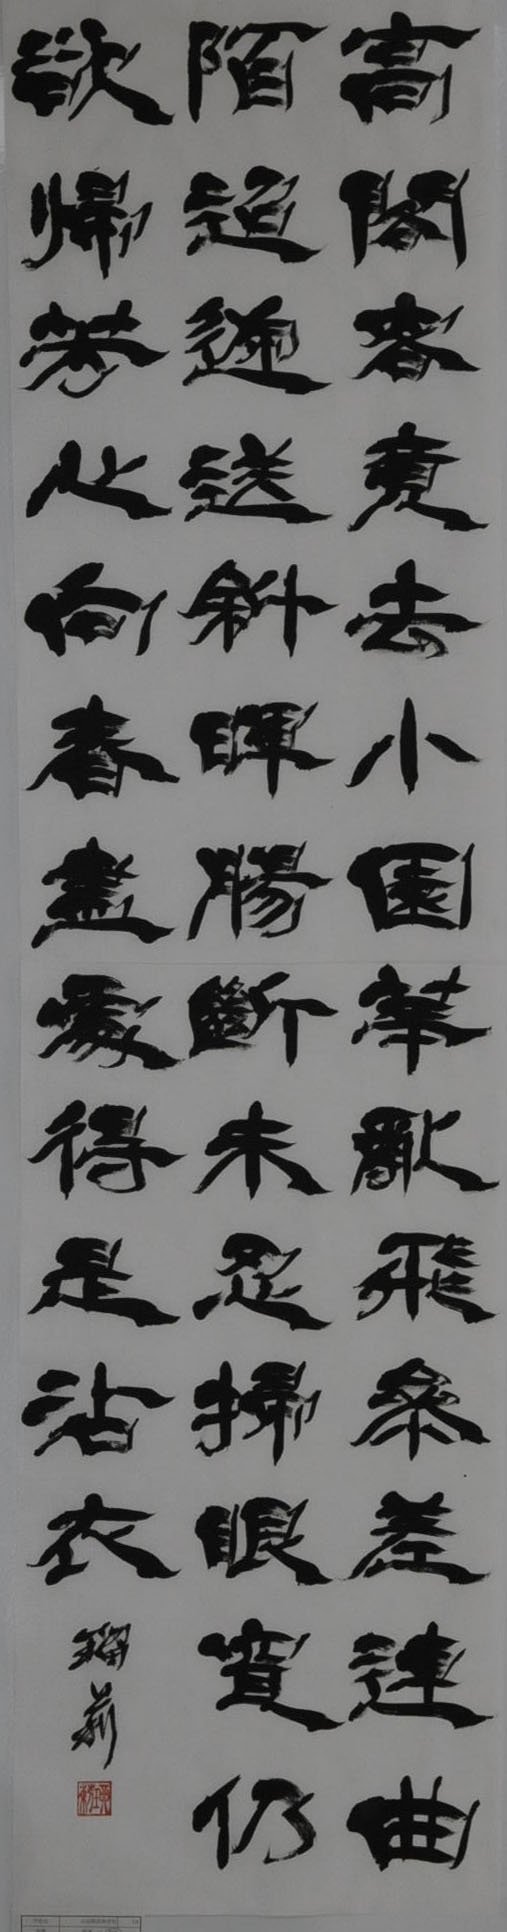 高閣客竟去小園華亂飛參差連曲
陌迢遞送斜暉腸斷未忍掃眼穿仍
欲歸芳心向春盡處得是沾衣